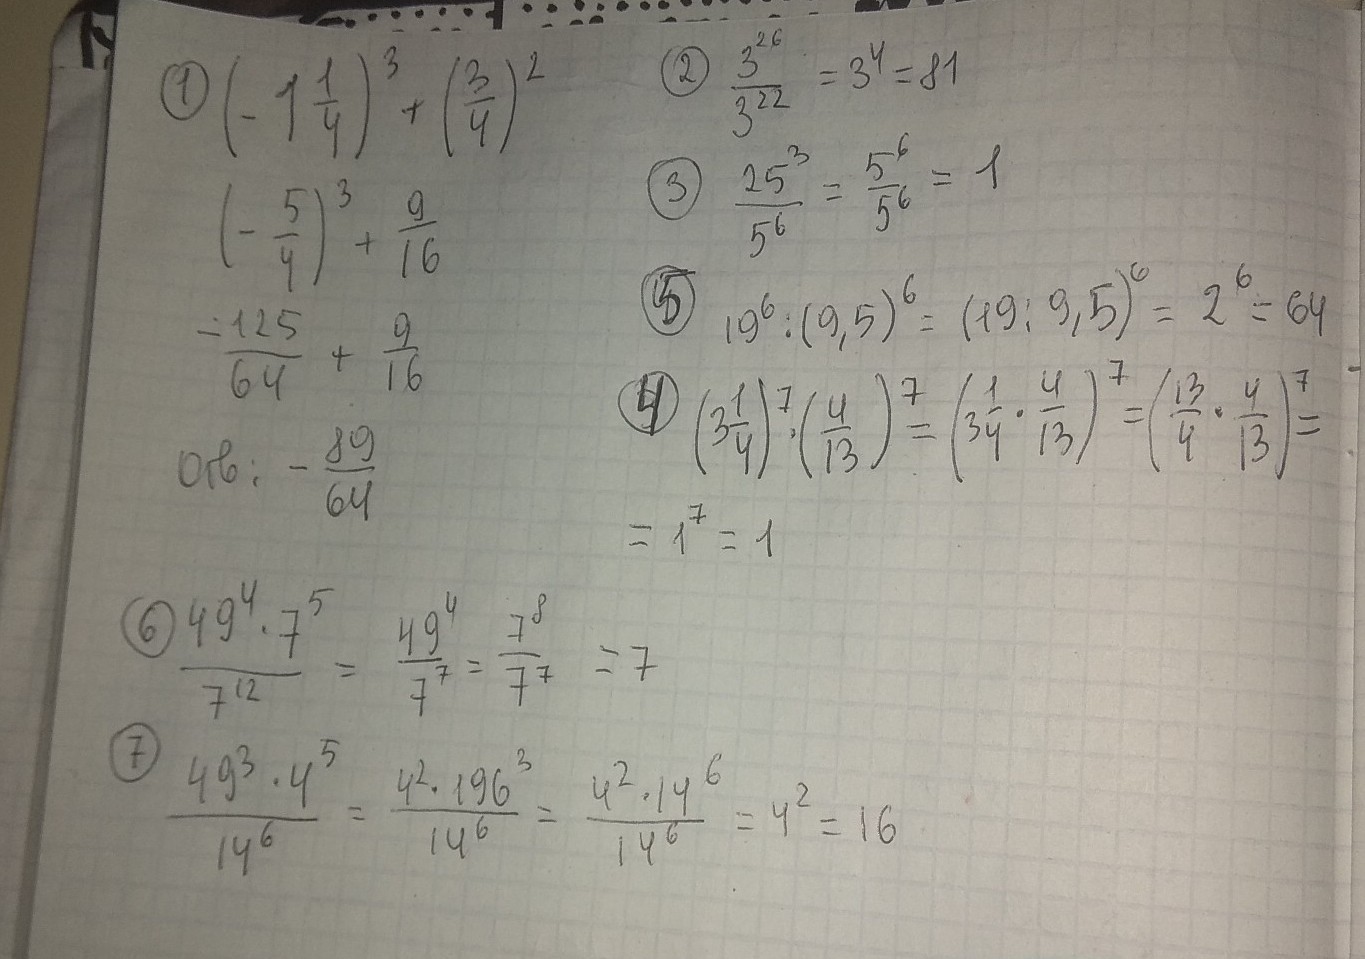 ① (-1 1/4)³ + (3/4)²
(-5/4)³ + 9/16
-125/64 + 9/16
Отв: -89/64
② 3²⁶/3²² = 3⁴ = 81
③ 25³/5⁶ = 5⁶/5⁶ = 1
⑤ 19⁶:(9,5)⁶ = (19:9,5)⁶ = 2⁶ = 64
④ (3 1/4)⁷·(4/13)⁷ = (3 1/4 · 4/13)⁷ = (13/4 · 4/13)⁷ =
= 1⁷ = 1
⑥ 49⁴·7⁵/7¹² = 49⁴/7⁷ = 7⁸/7⁷ = 7
⑦ 49³·4⁵/14⁶ = 4²·196³/14⁶ = 4²·14⁶/14⁶ = 4² = 16